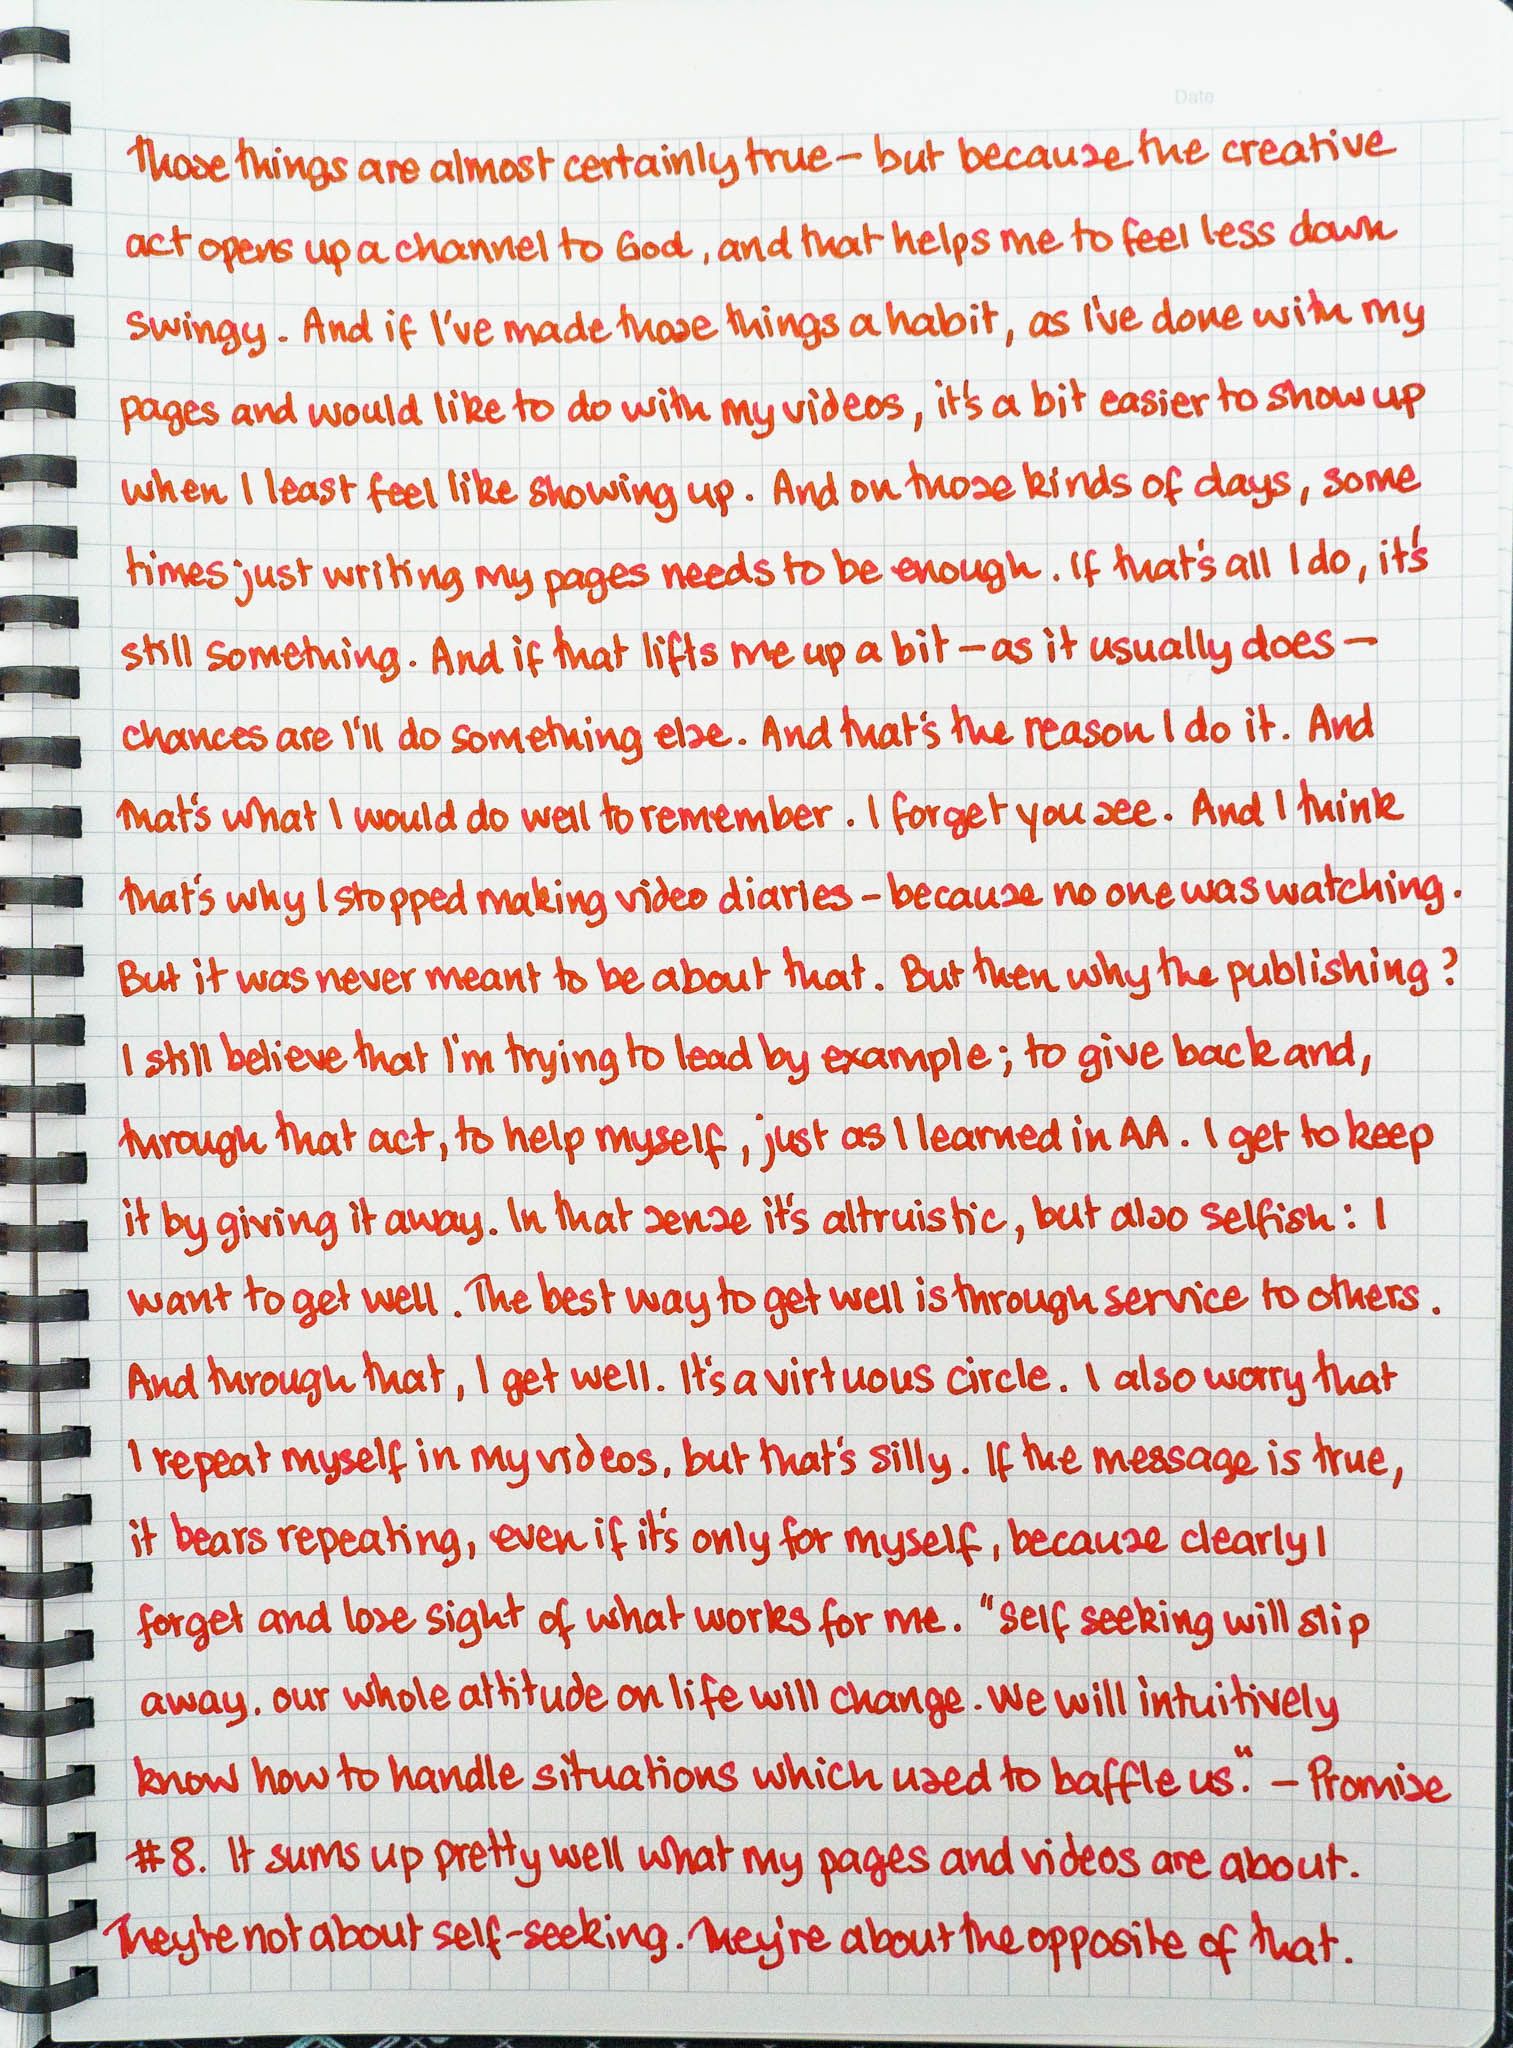 Date
those things are almost certainly true – but because the creative
act opens up a channel to God, and that helps me to feel less down
swingy. And if I've made those things a habit, as I've done with my
pages and would like to do with my videos, it's a bit easier to show up
when I least feel like showing up. And on those kinds of days, some
times just writing my pages needs to be enough. If that's all I do, it's
still something. And if that lifts me up a bit – as it usually does –
chances are I'll do something else. And that's the reason I do it. And
that's what I would do well to remember. I forget you see. And I think
that's why I stopped making video diaries – because no one was watching.
But it was never meant to be about that. But then why the publishing?
I still believe that I'm trying to lead by example; to give back and,
through that act, to help myself, just as I learned in AA. I get to keep
it by giving it away. In that sense it's altruistic, but also selfish: I
want to get well. The best way to get well is through service to others.
And through that, I get well. It's a virtuous circle. I also worry that
I repeat myself in my videos, but that's silly. If the message is true,
it bears repeating, even if it's only for myself, because clearly I
forget and lose sight of what works for me. "Self seeking will slip
away. Our whole attitude on life will change. We will intuitively
know how to handle situations which used to baffle us." – Promise
#8. It sums up pretty well what my pages and videos are about.
They're not about self-seeking. They're about the opposite of that.